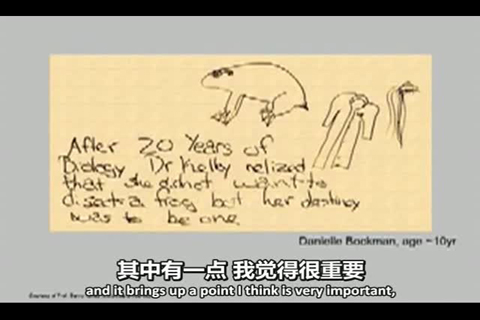 After 20 Years of
Biology Dr Kelley relized
that she didnet want to
disect a frog but her destiney
was to be one.
Danielle Bockman, age ~10yr
其中有一点 我觉得很重要
and it brings up a point I think is very important,
Courtesy of Prof.